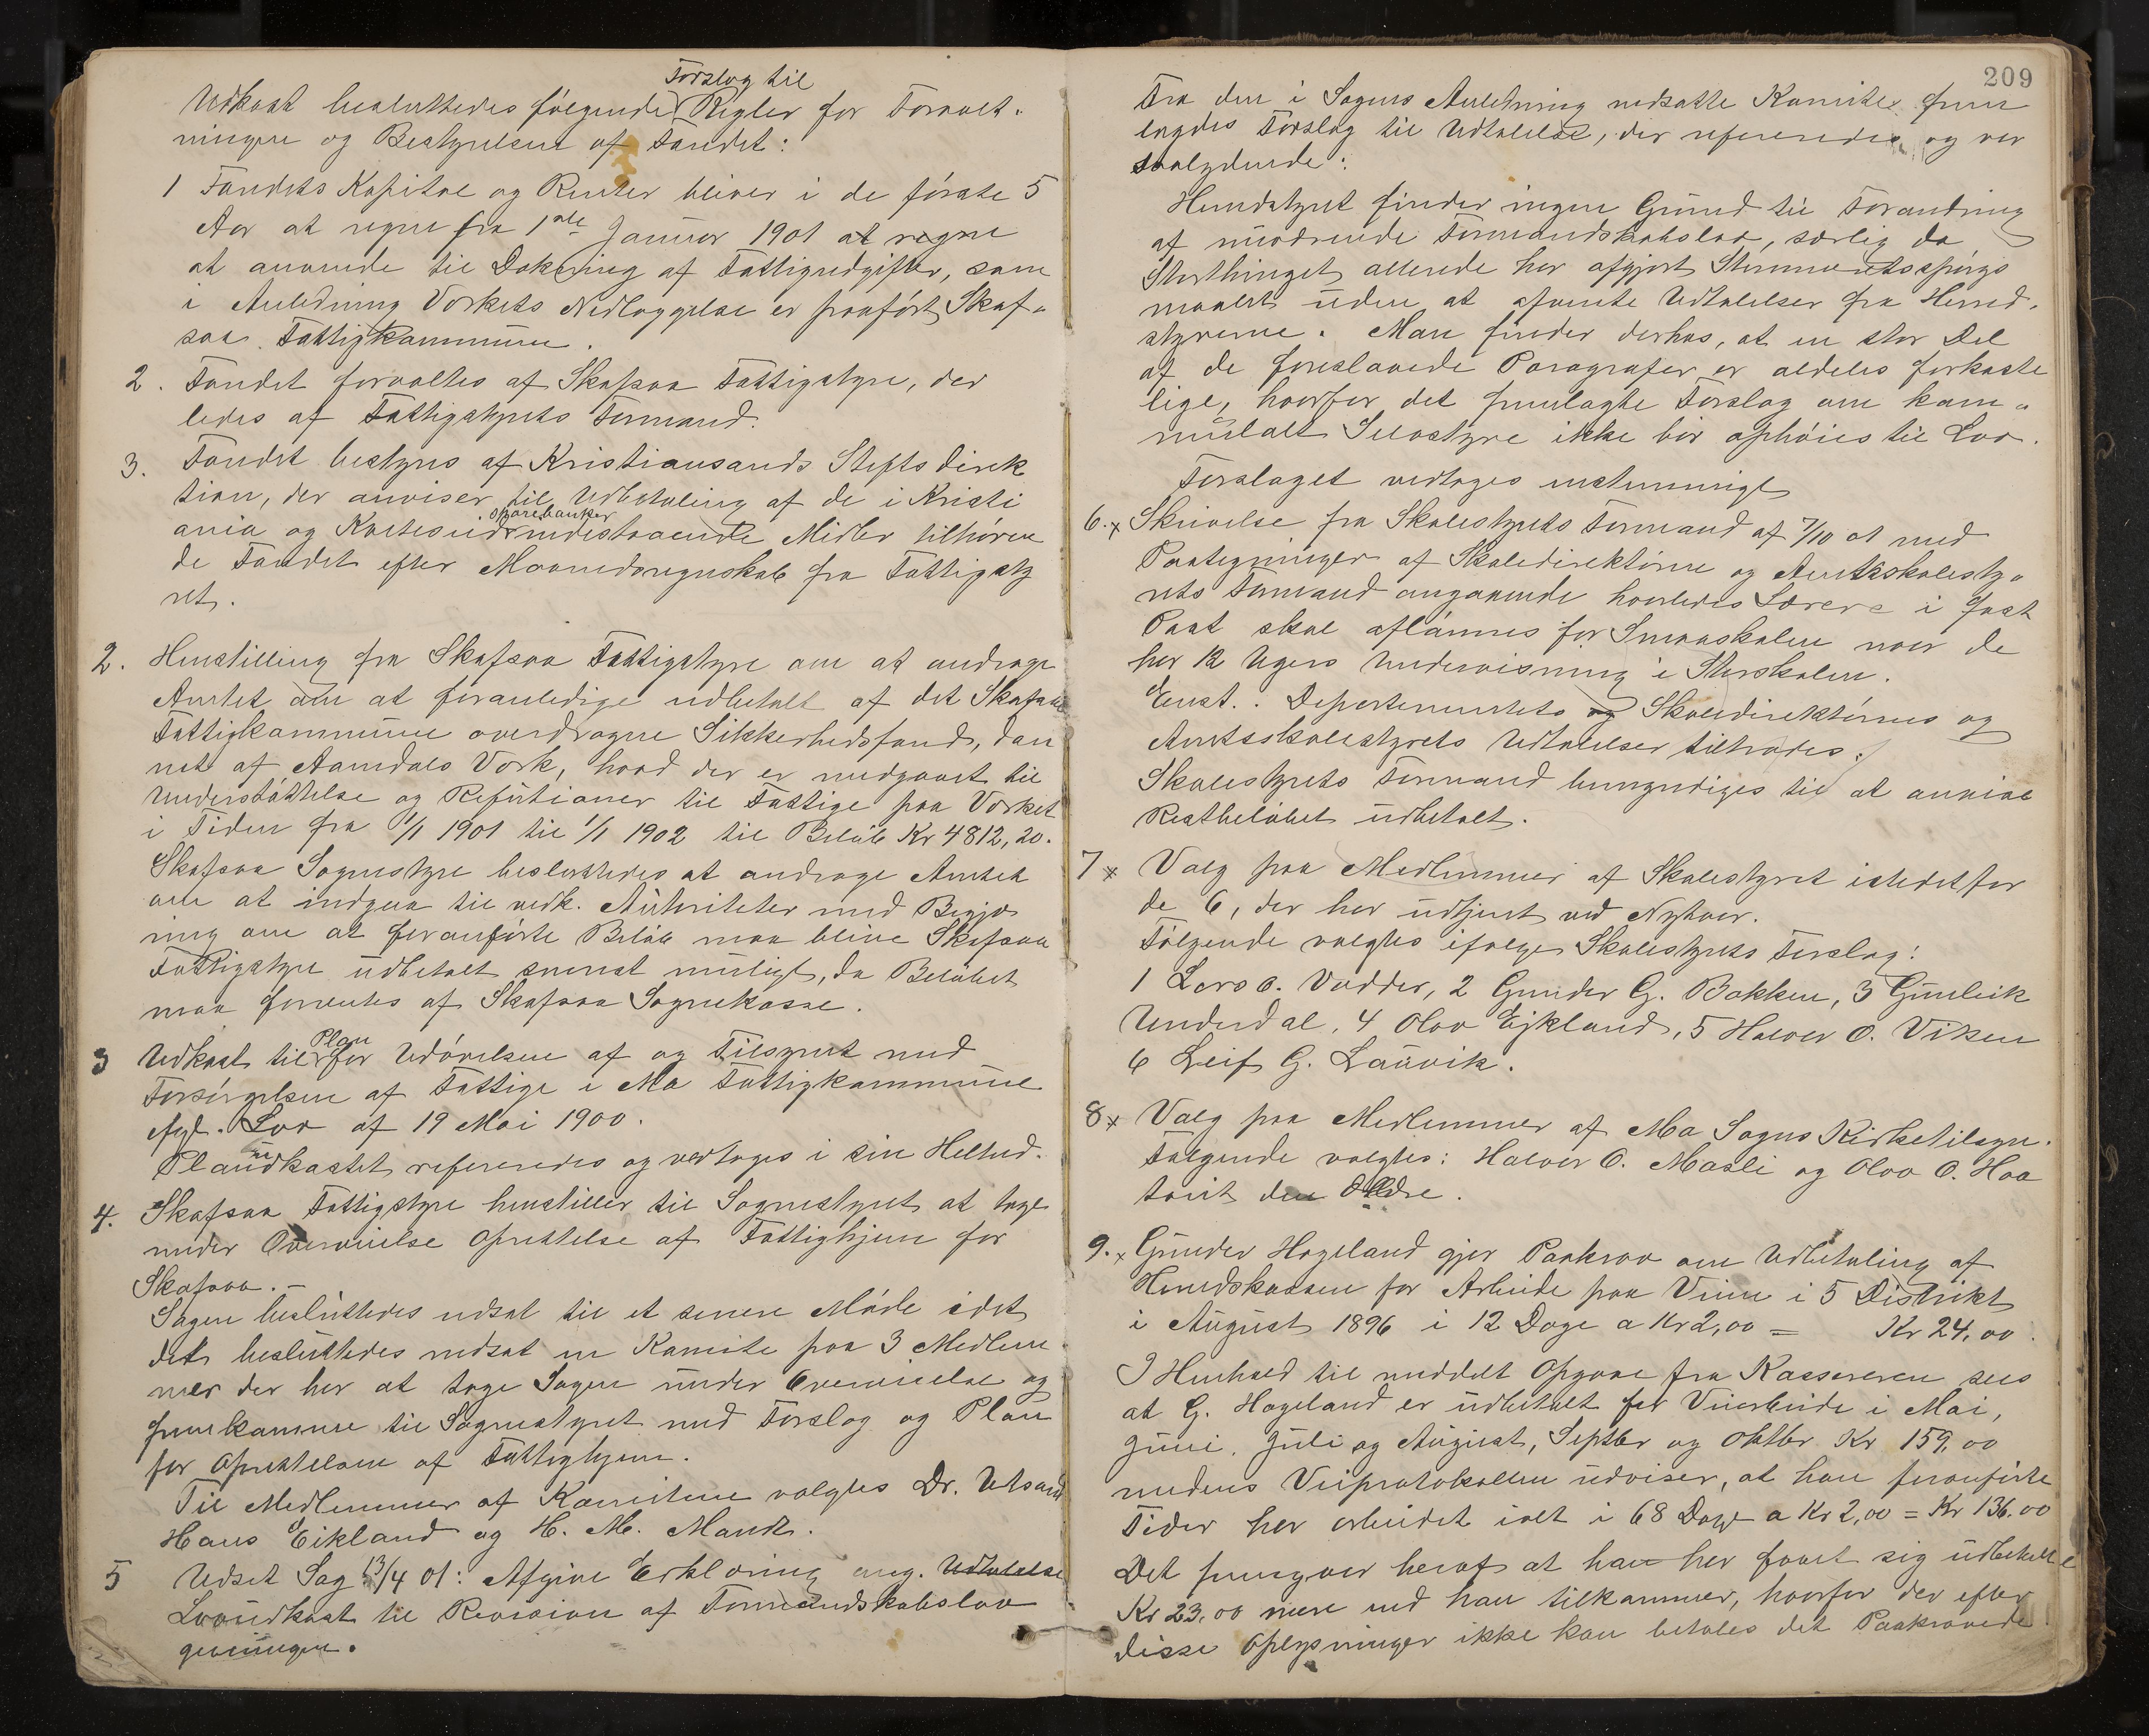 Forslag til
Udkast besluttedes følgende Regler for Forvalt-
ningen og Bestyrelsen af Fondet:
1 Fondets Kapital og Renter bliver i de første 5
Aar at regne fra 1ste Januar 1901 at regne
at anvende til Dækning af Fattigudgifter, som
i Anledning Værkets Nedlæggelse er paaført Skaf-
saa Fattigkommune.
2. Fondet forvaltes af Skafsaa Fattigstyre, der
ledes af Fattigstyrets Formand.
3. Fondet bestyres af Kristiansands Stiftsdirek
tion, der anviser til Udbetaling af de i Kristi
ania og Kviteseid sparebanker indestaaende Midler tilhøren
de Fondet efter Maanedsregnskab fra Fattigsty
ret.
2. Henstilling fra Skafsaa Fattigstyre om at andrage
Amtet om at foranledige udbetalt af det Skafsaa
Fattigkommune overdragne Sikkerhedsfond, dan
net af Aamdals Værk, hvad der er medgaaet til
Understøttelse og Refusioner til Fattige paa Værket
i Tiden fra 1/1 1901 til 1/1 1902 til Beløb Kr 4812,20.
Skafsaa Sognestyre besluttedes at andrage Amtet
om at indgaa til vedk. Autoriteter med Begjæ
ring om at foranførte Beløb maa blive Skafsaa
Fattigstyre udbetalt snarest muligt, da Beløbet
maa forrentes af Skafsaa Sognekasse.
3 Udkast til Plan for Udøvelsen af og Tilsynet med
Forsørgelsen af Fattige i Mo Fattigkommune
efgt. Lov af 19 Mai 1900.
Planudkastet refereredes og vedtoges i sin Helhed.
4. Skafsaa Fattigstyre henstiller til Sognestyret at tage
under Overveielse Oprettelse af Fattighjem for
Skafsaa.-
Sagen besluttedes udsat til et senere Møde idet
det besluttedes nedsat en Komite paa 3 Medlem
mer der har at tage Sagen under Overveielse og
fremkomme til Sognestyret med Forslag og Plan
for Oprettelsen af Fattighjem.
Til Medlemmer af Komiteen valgtes Dr. Utsand
Hans Eikland og H. M. Mandt.
5 Udsat Sag 13/4 01: Afgive Erklæring ang. Udtalelse
Lovudkast til Revision af Formandskabslov
givningen.
209
Fra den i Sagens Anledning nedsatte Komite frem
lagdes Forslag til Udtalelse, der refereredes og var
saalydende:
Herredstyret finder ingen Grund til Forandring
af nuværende Formandskabslov, særlig da
Storthinget allerede har afgjort Stemmeretsspørgs
maalet uden at afvente Udtalelser fra Herred-
styrerne. Man finder derhos, at en stor Del
af de foreslaaede Paragrafer er aldeles forkaste
lige, hvorfor det fremlagte Forslag om kom-
munalt Selvstyre ikke bør ophøies til Lov.
Forslaget vedtoges enstemmigt
6. x Skrivelse fra Skolestyrets Formand af 7/10 01 med
Paategninger af Skoledirektøren og Amtsskolesty-
rets Formand angaaende hvorledes Lærere i fast
Post skal aflønnes for Smaaskolen naar de
har 12 Ugers Undervisning i Storskolen.
Enst.: Departementets og Skoledirektørens og
Amtsskolestyrets Udtalelser tiltrædes.
Skolestyrets Formand bemyndiges til at anvise
Restbeløbet udbetalt.
7 x Valg paa Medlemmer af Skolestyret istedetfor
de 6, der har udtjent ved Nytaar.
Følgende valgtes ifølge Skolestyrets Forslag:
1 Lars O. Vadder, 2 Gunder G. Bakken, 3 Gunleik
Underdal, 4 Olav Eikland, 5 Halvor O. Viken
6 Leif G. Lauvik.
8 x Valg paa Medlemmer af Mo Sogns Kirketilsyn.
Følgende valgtes: Halvor O. Masli og Olav O. Hoa
tvit den Ældre.
9. x Gunder Hageland gjør Paakrav om Udbetaling af
Herredskassen for Arbeide paa Veien i 5 Distrikt
i August 1896 i 12 Dage a Kr 2,00 = Kr 24,00.
I Henhold til meddelt Opgave fra Kassereren sees
at G. Hageland er udbetalt for Veiarbeide i Mai,
Juni, Juli og August, Septbr og Oktbr Kr 159,00
medens Veiprotokollen udviser, at han foranførte
Tider har arbeidet ialt i 68 Dage a Kr 2,00 = Kr 136,00
Det fremgaar heraf at han har faaet sig udbetalt
Kr 23,00 mere end han tilkommer, hvorfor der efter
disse Oplysninger ikke kan betales det Paakrævede